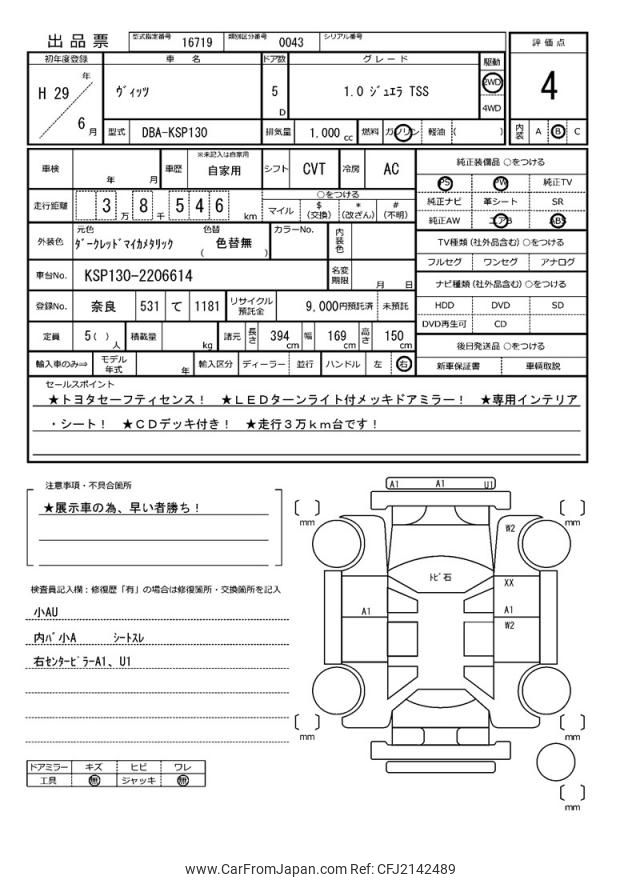 出品票
型式指定番号 16719 類別区分番号 0043 シリアル番号
初年度登録 車名 ドア数 グレード 駆動 評価点
H 29 年 6 月 ヴィッツ 5 D 1.0 ジュエラ TSS 2WD 4WD 4
型式 DBA-KSP130 排気量 1,000 cc 燃料 ガソリン 軽油 ( ) 内装 A B C
車検 年 月 車歴 ※未記入は自家用 自家用 シフト CVT 冷房 AC
走行距離 3 万 8 千 5 4 6 km
○をつける
マイル $ (交換) * (改ざん) # (不明)
外装色 元色 ダークレッドマイカメタリック 色替 ( 色替無 ) カラーNo. 内装色
車台No. KSP130-2206614 名変期限 月 日
登録No. 奈良 531 て 1181 リサイクル預託金 9,000円預託済 未預託
定員 5 ( ) 人 積載量 kg 諸元 長さ 394 cm 幅 169 cm 高さ 150 cm
輸入車のみ⇒ モデル年式 年 輸入区分 ディーラー 並行 ハンドル 左 右
純正装備品 ○をつける
PS PW 純正TV
純正ナビ 革シート SR
純正AW エアB ABS
TV種類 (社外品含む) ○をつける
フルセグ ワンセグ アナログ
ナビ種類 (社外品含む) ○をつける
HDD DVD SD
DVD再生可 CD
後日発送品 ○をつける
新車保証書 車輌取説
セールスポイント
★トヨタセーフティセンス! ★LEDターンライト付メッキドアミラー! ★専用インテリア
・シート! ★CDデッキ付き! ★走行3万km台です!
注意事項・不具合箇所
★展示車の為、早い者勝ち!
検査員記入欄:修復歴「有」の場合は修復箇所・交換箇所を記入
小AU
内バ小A シートスレ
右センターピラーA1、U1
ドアミラー キズ ヒビ ワレ
工具 無 ジャッキ 無
A1 A1 U1
mm mm
W2
トビ石
XX
A1 A1
W2
mm mm
mm
www.CarFromJapan.com Ref: CFJ2142489